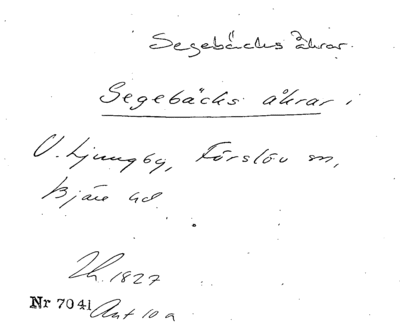 Segebäcks åkrar.
Segebäcks åkrar i
V. Ljungby, Förslöv sn,
Bjäre hd
Lh. 1827
Nr 7041 Ant 10 a